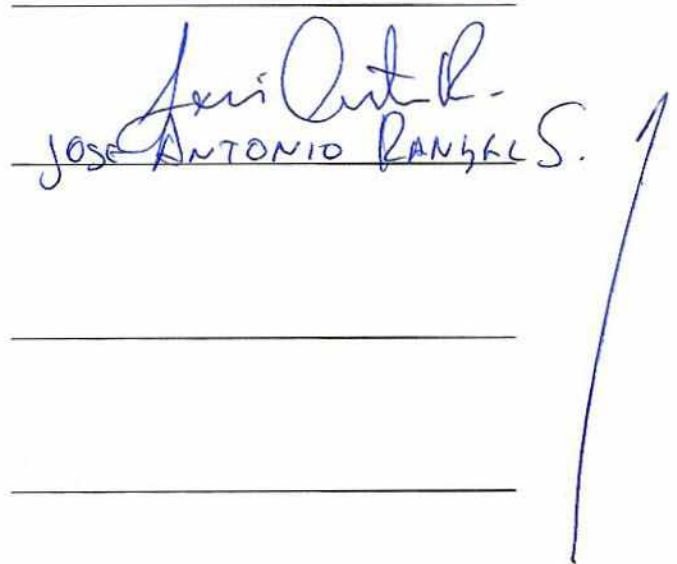 JOSE ANTONIO RANGEL S.